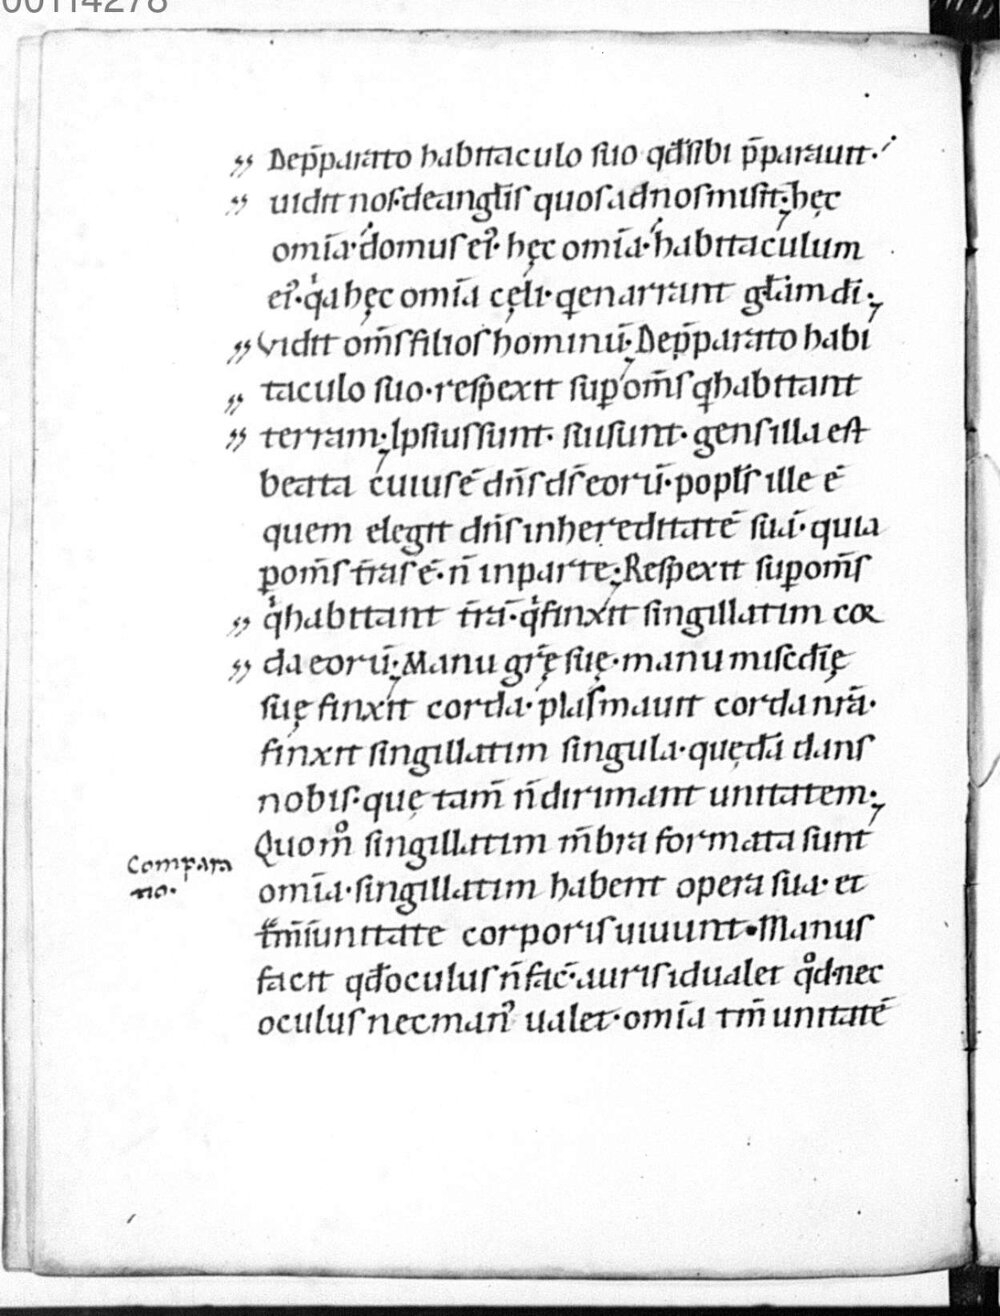 00114278
„ Dep̄parato habitaculo suo qđ sibi p̄parauit·
„ uidit nos· de angłis quos ad nos misit; hęc
omīa· domus eiꝰ· hęc omīa· habitaculum
eiꝰ· qͥa hęc omīa cęli· q̨ enarrant głam dī·;
„ Vidit om̄s filios hominū; De p̄parato habi
„ taculo suo· respexit suꝑ om̄s q̨ habitant
„ terram; Ipsius sunt· sui sunt· gens illa est
beata cuius ē dn̄s ds̄ eorū· popłs ille ē
quem elegit dn̄s in hereditatē suā· quia
ꝑ om̄s t̄ras ē· n̄ in parte; Respexit suꝑ om̄s
„ qͥ habitant t̄rā· qͥ finxit singillatim cor
„ da eorū; Manu gr̄ę suę· manu misc̄dīę
suę finxit corda· plasmauit corda nr̄a·
finxit singillatim singula· quędā dans
nobis· quę tam̄ n̄ dirimant unitatem;
Quom̊ singillatim m̄bra formata sunt
Compara
tio·
omīa· singillatim habent opera sua· et
tm̄ ī unitate corporis uiuunt· Manus
facit qđ oculus n̄ fac̄· auris id ualet qͦd· nec
oculus nec manꝰ ualet· omīa tm̄ unitatē